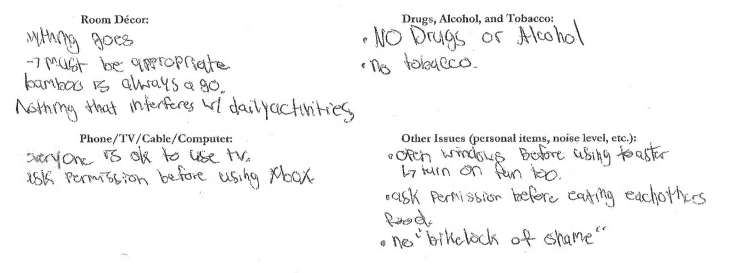 Room Décor:
goes
→ must be appropriate
bamboo is always a go.
Nothing that interferes w/ daily activities
Drugs, Alcohol, and Tobacco:
• NO Drugs or Alcohol
• no tobacco.
Phone/TV/Cable/Computer:
everyone is ok to use tv.
ask permission before using Xbox
Other Issues (personal items, noise level, etc.):
• open windows Before using toaster
↳ turn on fan too.
• ask permission before eating eachothers
food.
• no "bikelock of shame"